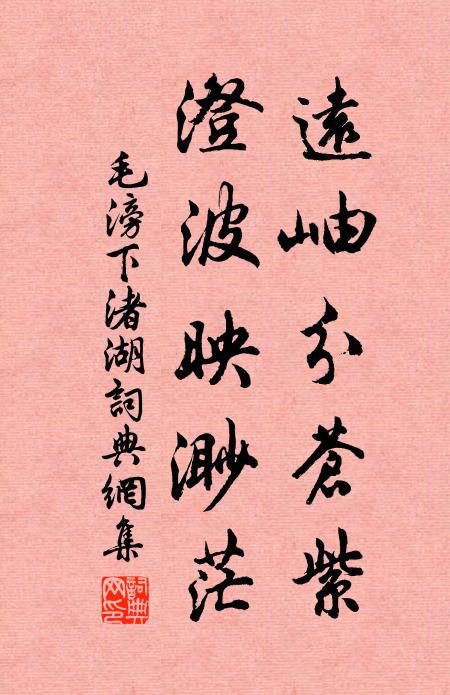 遠岫分蒼紫
澄波映渺茫
毛滂下渚湖詞典網集
詞典網印